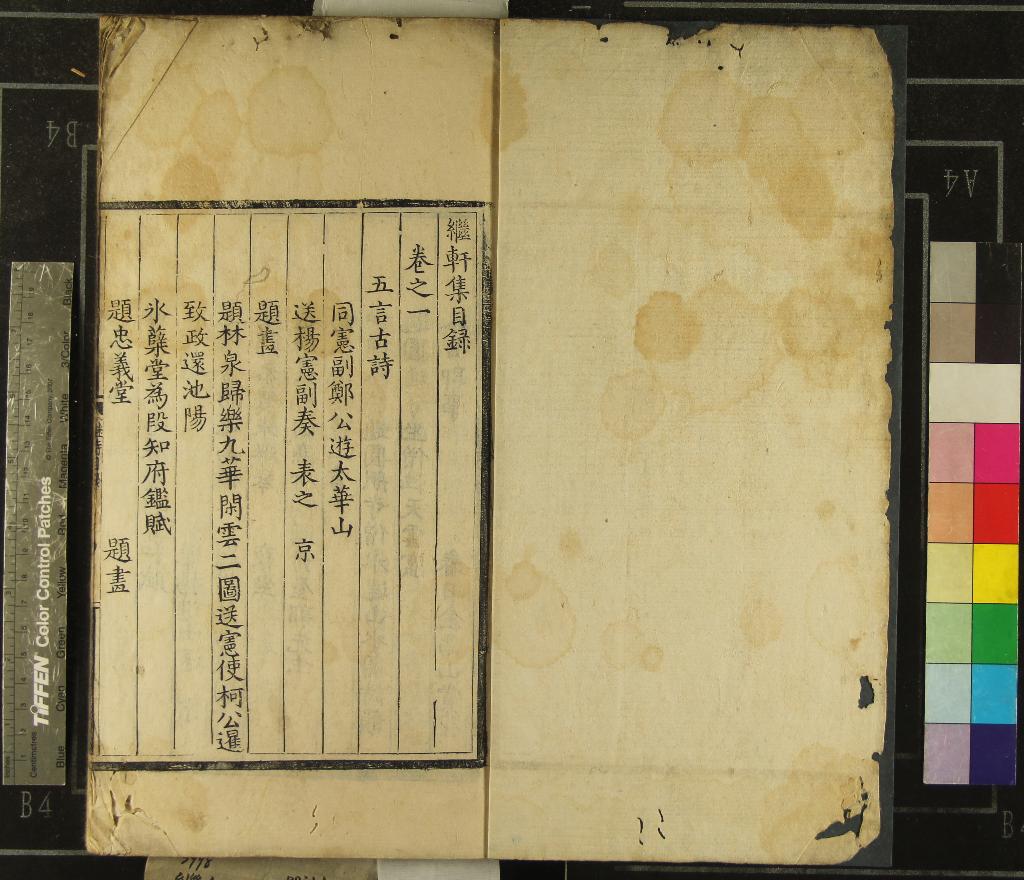 繼軒集目録
卷之一
五言古詩
同憲副鄭公遊太華山
送楊憲副奏 表之 京
題畫
題林泉歸樂九華閑雲二圖送憲使柯公暹
致政還池陽
氷蘗堂為段知府鑑賦
題忠義堂 題畫
B4
A4
B4
TIFFEN Color Control Patches
Centimetres
Inches
Blue
Cyan
Green
Yellow
Red
Magenta
White
3/Color
Black